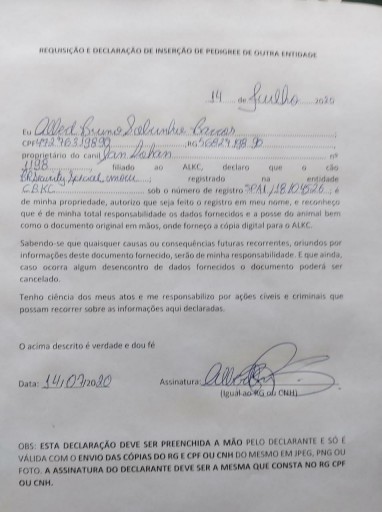 REQUISIÇÃO E DECLARAÇÃO DE INSERÇÃO DE PEDIGREE DE OUTRA ENTIDADE
14 de Julho 2020
Eu Bruno
CPF RG
proprietário do canil nº
1198, filiado ao ALKC, declaro que o cão
registrado na entidade
CBKC sob o número de registro SPAI/18/04626, é
de minha propriedade, autorizo que seja feito o registro em meu nome, e reconheço
que é de minha total responsabilidade os dados fornecidos e a posse do animal bem
como o documento original em mãos, onde forneço a cópia digital para o ALKC.
Sabendo-se que quaisquer causas ou consequências futuras recorrentes, oriundos por
informações deste documento fornecido, serão de minha responsabilidade. E que ainda,
caso ocorra algum desencontro de dados fornecidos o documento poderá ser
cancelado.
Tenho ciência dos meus atos e me responsabilizo por ações cíveis e criminais que
possam recorrer sobre as informações aqui declaradas.
O acima descrito é verdade e dou fé
Data: 14/07/2020 Assinatura:
(Igual ao RG ou CNH)
OBS: ESTA DECLARAÇÃO DEVE SER PREENCHIDA A MÃO PELO DECLARANTE E SÓ É
VÁLIDA COM O ENVIO DAS CÓPIAS DO RG E CPF OU CNH DO MESMO EM JPEG, PNG OU
FOTO. A ASSINATURA DO DECLARANTE DEVE SER A MESMA QUE CONSTA NO RG CPF
OU CNH.